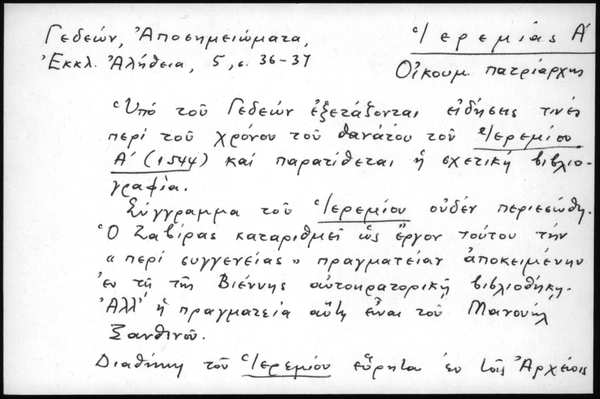 Γεδεών, Ἀποσημειώματα,
Ἐκκλ. Ἀλήθεια, 5, σ. 36-37
Ἱερεμίας Α´
Οἰκουμ. πατριάρχης
Ὑπό τοῦ Γεδεών ἐξετάζονται εἰδήσεις τινές
περί τοῦ χρόνου τοῦ θανάτου τοῦ Ἱερεμίου
Α´ (1544) καί παρατίθεται ἡ σχετική βιβλιο-
γραφία.
Σύγγραμμα τοῦ Ἱερεμίου οὐδέν περιεσώθη.
Ὁ Ζαβίρας καταριθμεῖ ὡς ἔργον τούτου τήν
«περί συγγενείας» πραγματείαν ἀποκειμένην
ἐν τῇ τῆς Βιέννης αὐτοκρατορικῇ βιβλιοθήκῃ.
Ἀλλ' ἡ πραγματεία αὕτη εἶναι τοῦ Μανουήλ
Ξανθινοῦ.
Διαθήκη τοῦ Ἱερεμίου εὕρηται ἐν τοῖς Ἀρχείοις